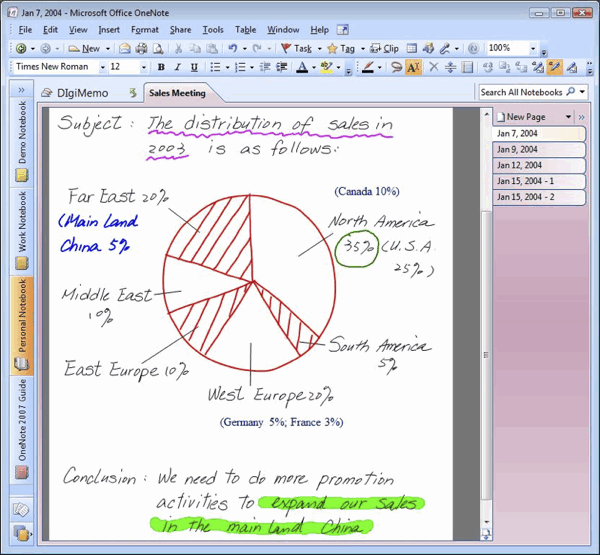 Jan 7, 2004 - Microsoft Office OneNote
File Edit View Insert Format Share Tools Table Window Help
New Task Tag Clip 100%
Times New Roman 12 B I U A
DIgiMemo Sales Meeting Search All Notebooks
Demo Notebook
Work Notebook
Personal Notebook
OneNote 2007 Guide
New Page
Jan 7, 2004
Jan 9, 2004
Jan 12, 2004
Jan 15, 2004 - 1
Jan 15, 2004 - 2
Subject: The distribution of sales in
2003 is as follows:
Far East 20%
(Main Land
China 5%
(Canada 10%)
North America
35% (U.S.A.
25%)
Middle East
10%
South America
5%
East Europe 10%
West Europe 20%
(Germany 5%; France 3%)
Conclusion: We need to do more promotion
activities to expand our sales
in the main land China